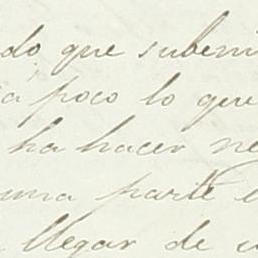 do que suben
a poco lo que
ha hacer ne
una parte
llegar de